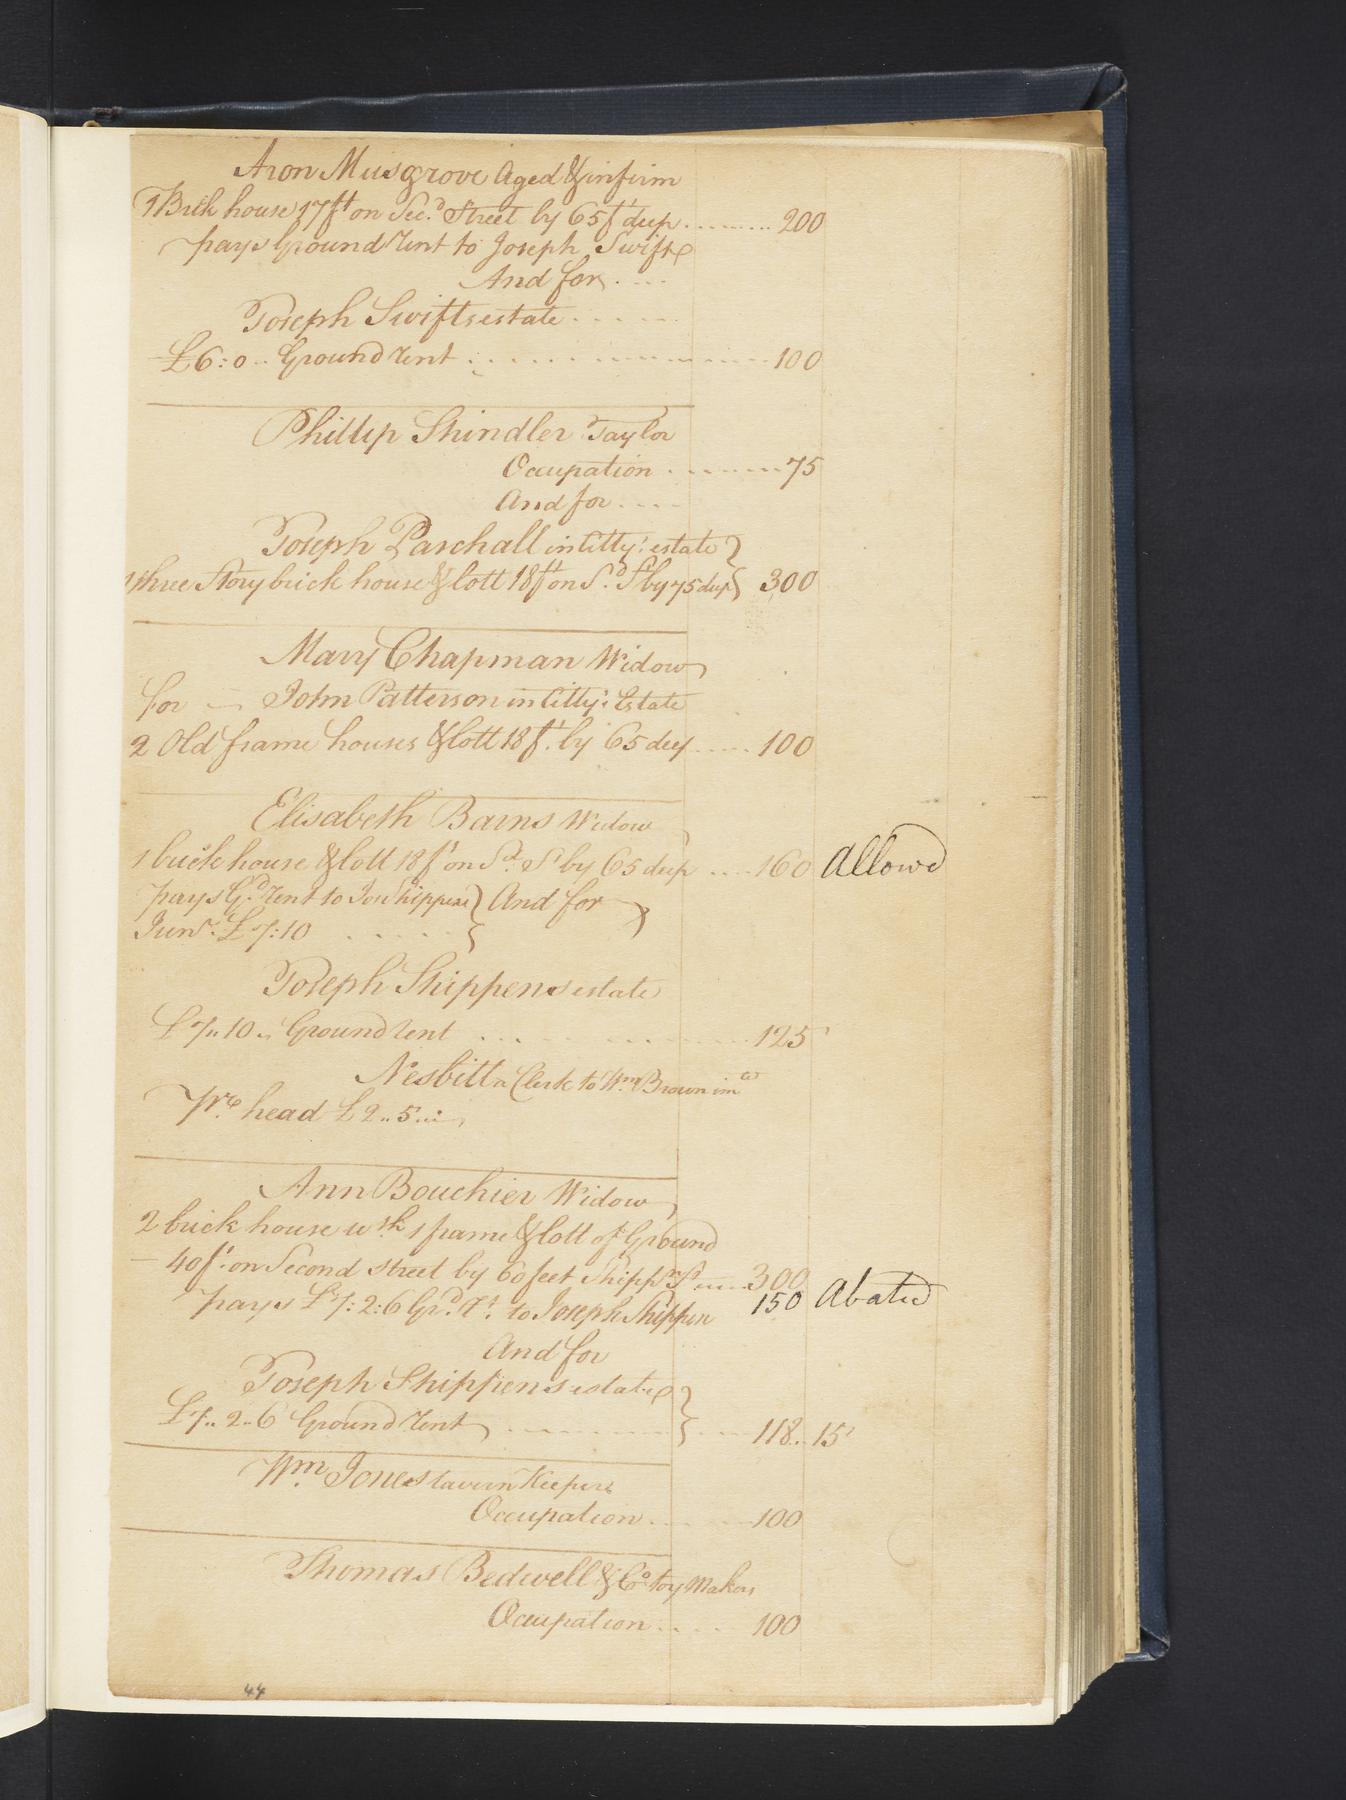 Aron Musgrove Aged & infirm
1 Brick house 17 ft on Sec.d Street by 65 ft deep ........ 200
pays Ground rent to Joseph Swift
And for ....
Joseph Swifts estate .....
£6:0.. Ground rent .............. 100
Phillip Shindler Taylor
Occupation ........ 75
And for ....
Joseph Paschall in Citty: estate }
1 three Story brick house & lott 18 ft on S.d St by 75 deep } 300
Mary Chapman Widow
for — John Patterson in Citty: Estate
2 Old frame houses & lott 18 ft. by 65 deep ..... 100
Elisabeth Barns Widow
1 brick house & lott 18 ft on S.d St by 65 deep .... 160 Allowd
pays G.d rent to Jos Shippen } And for }
Junr. £7:10 ..... }
Joseph Shippens estate
£7..10.. Ground rent ............ 125
Nesbitt a Clerk to Wm Brown
head £2..5..
Ann Bouchier Widow
2 brick house wth 1 frame & lott of Ground
— 40 ft. on Second street by 60 feet Shippn St ..... 300
pays £7:2:6 Grd. Rt. to Joseph Shippen 150 Abated
And for
Joseph Shippens estate }
£7..2..6 Ground rent ............ } .... 118..15
Wm. Jones tavern Keeper
Occupation ....... 100
Thomas Bedwell & Co toy Makers
Occupation ..... 100
44